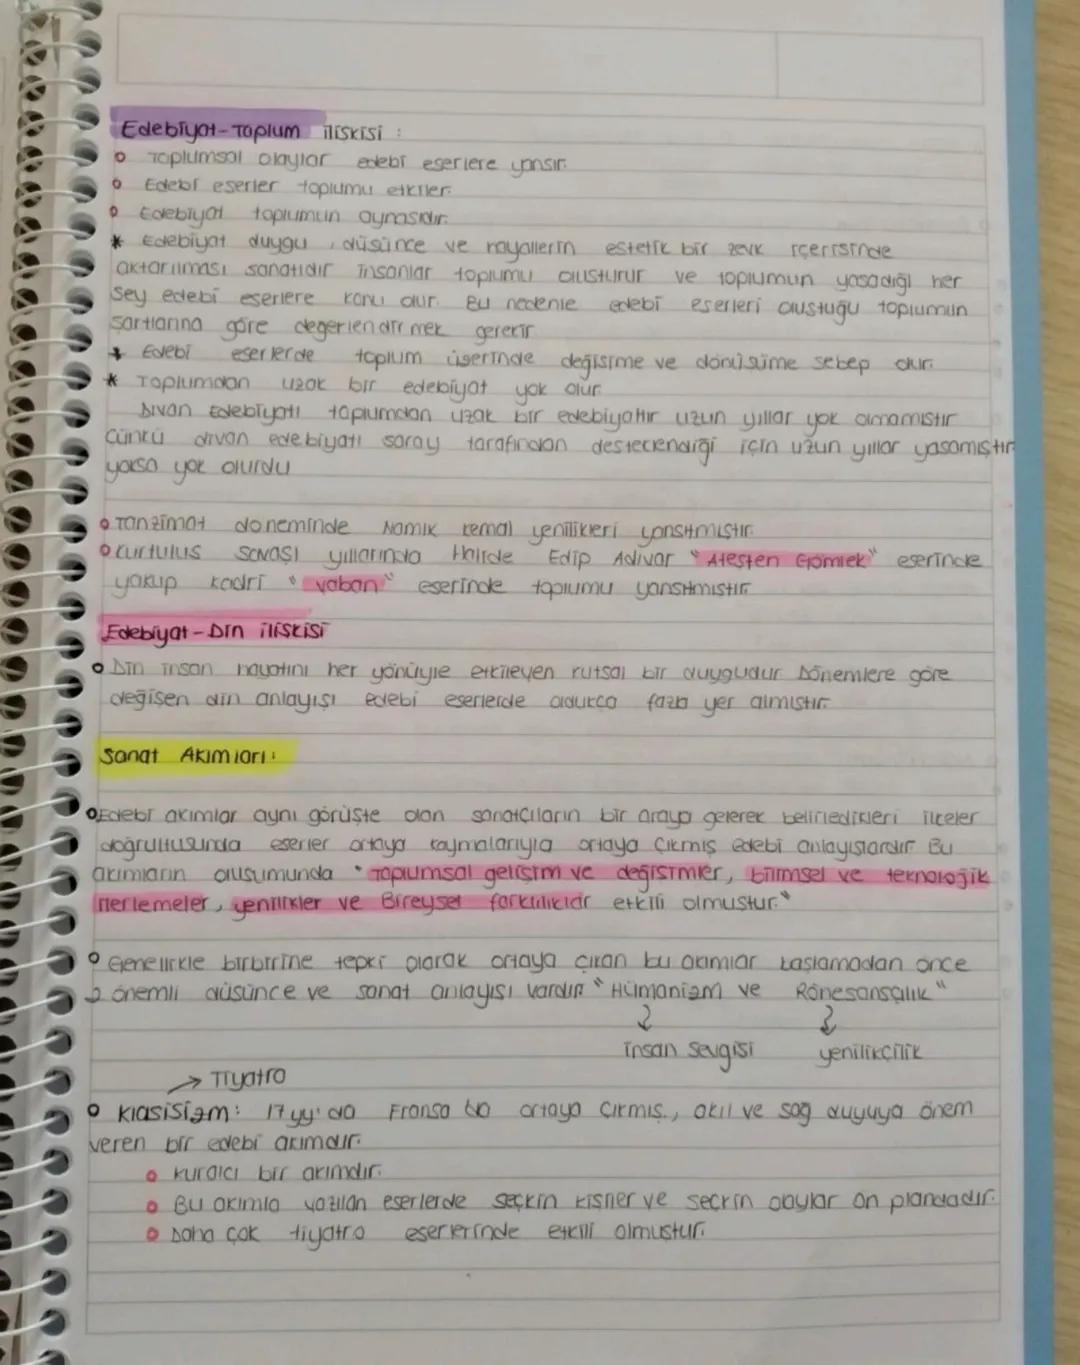 Edebiyat-Toplum ilişkisi :
o Toplumsal olaylar edebi eserlere yansır.
o Edebi eserler toplumu etkiler.
o Edebiyat toplumun aynasıdır.
* Edebiyat duygu, düşünce ve hayallerin estetik bir zevk içerisinde
aktarılması sanatıdır insanlar toplumu oluşturur ve toplumun yaşadığı her
şey edebi eserlere konu olur. Bu nedenle edebi eserleri oluştuğu toplumun
şartlarına göre değerlendirmek gerekir
* Edebi eserlerde toplum üserinde değişime ve dönüşüme sebep olur.
* Toplumdan uzak bir edebiyat yok olur.
Divan Edebiyatı toplumdan uzak bir edebiyattır uzun yıllar yok olmamıştır
Çünkü divan edebiyatı saray tarafından desteklendiği için uzun yıllar yaşamıştır
yoksa yok olurdu
o Tanzimat döneminde Namık Kemal yenilikleri yansıtmıştır.
o Kurtuluş Savaşı yıllarında Halide Edip Adıvar "Ateşten Gömlek" eserinde
yakup kadri "yaban" eserinde toplumu yansıtmıştır.
Edebiyat-Din ilişkisi
o Din insan hayatını her yönüyle etkileyen kutsal bir duygudur Dönemlere göre
değişen din anlayışı edebi eserlerde oldukça fazla yer almıştır.
Sanat Akımları:
o Edebi akımlar aynı görüşte olan sanatçıların bir araya gelerek belirledikleri ilkeler
doğrultusunda eserler ortaya koymalarıyla ortaya çıkmış edebi anlayışlardır. Bu
akımların oluşumunda "Toplumsal gelişim ve değişimler, bilimsel ve teknolojik
ilerlemeler, yenilikler ve Bireysel farklılıklar etkili olmuştur."
o Genellikle birbirine tepki olarak ortaya çıkan bu akımlar başlamadan önce
2 önemli düşünce ve sanat anlayışı vardır. "Hümanizm ve Rönesansçılık"
insan sevgisi yenilikçilik
→ Tiyatro
o Klasisizm: 17.yy'da Fransa'da ortaya çıkmış, akıl ve sağ duyuya önem
veren bir edebi akımdır.
o Kuralcı bir akımdır.
o Bu akımla yazılan eserlerde seçkin kişiler ve seçkin olaylar ön plandadır.
o Daha çok tiyatro eserlerinde etkili olmuştur.